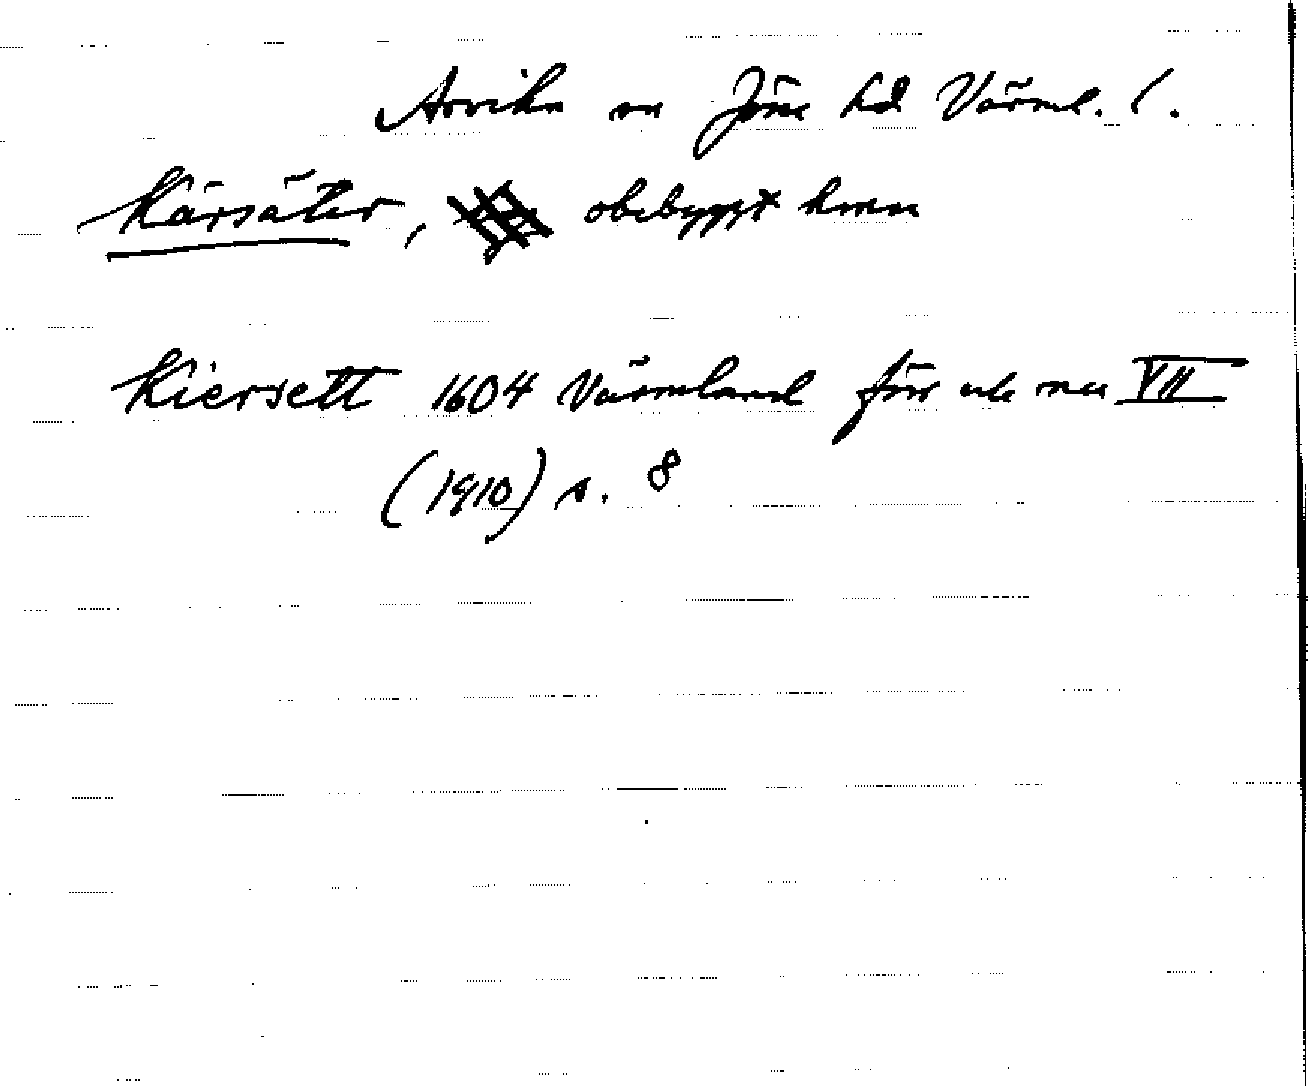 Arvika sn Jösse hd Värml. l.
Kärsäter, obebyggt hmn
Kiersett 1604 Värmland förr och nu VII
(1910) s. 8